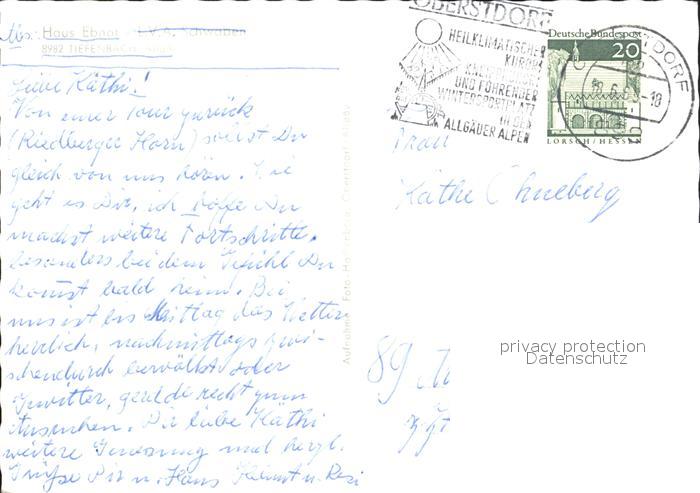 Abs: Haus Ebnat L.V.A. Schwaben
8982 TIEFENBACH
Liebe Käthi!
Von einer Tour zurück
(Riedberger Horn) sollst Du
gleich von uns hören. Wie
geht es Dir, ich hoffe Du
machst weitere Fortschritte,
besonders bei dem Gefühl Du
kommst bald heim. Bei
uns ist bis Mittag das Wetter
herrlich, nachmittags zwi-
schendurch bewölkt oder
Gewitter, gerade recht zum
Ausruhen. Dir liebe Käthi
weitere Genesung und herzl.
Grüße Dir u. Hans Helmut u. Resi
Aufnahme Foto Oberstdorf
OBERSTDORF
HEILKLIMATISCHER
KURORT
UND FÜHRENDER
WINTERSPORTPLATZ
IN DEN
ALLGÄUER ALPEN
Deutsche Bundespost
20
LORSCH / HESSEN
OBERSTDORF
Frau
Käthe
89
privacy protection
Datenschutz